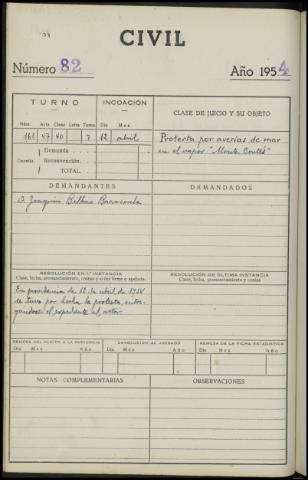 CIVIL
Número 82
Año 1954
TURNO
INCOACIÓN
CLASE DE JUICIO Y SU OBJETO
Núm. Acta Clase Letra Turno Día Mes
161 47 40 7 12 abril
Protesta por averías de mar
en el vapor "Monte
Cuantía
Demanda
Reconvención
TOTAL
DEMANDANTES
DEMANDADOS
D. Joaquín Bilbao
RESOLUCIÓN EN 1.ª INSTANCIA
Clase, fecha, pronunciamiento, costas y si fue firme o apelada.
RESOLUCIÓN DE ÚLTIMA INSTANCIA
Clase, fecha, pronunciamiento y costas
En providencia de 12 de abril de 1954
se tuvo por hecha la protesta, entre-
gándose el expediente al actor
REMESA DEL PLEITO A LA AUDIENCIA
DEVOLUCIÓN AL JUZGADO
REMESA DE LA FICHA ESTADÍSTICA
Día Mes Año Día Mes Año Día Mes Año
NOTAS COMPLEMENTARIAS
OBSERVACIONES